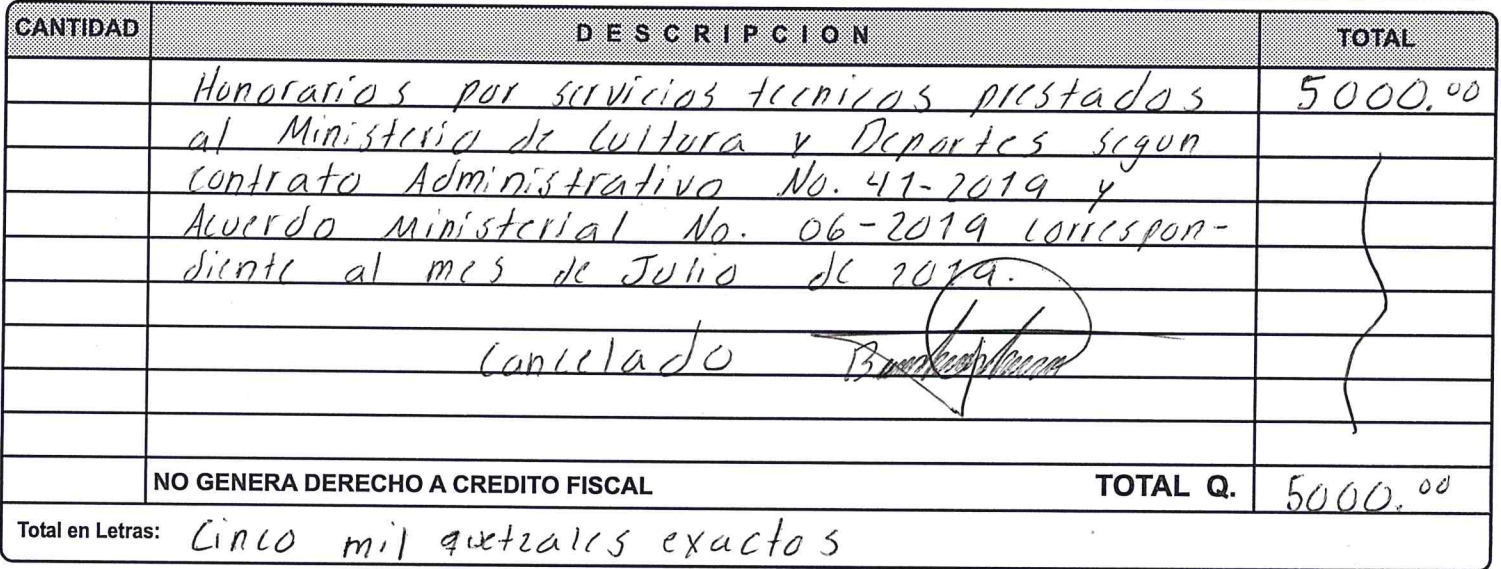 CANTIDAD DESCRIPCION TOTAL
Honorarios por servicios tecnicos prestados 5000.00
al Ministerio de Cultura y Deportes segun
contrato Administrativo No. 41-2019 y
Acuerdo Ministerial No. 06-2019 correspon-
diente al mes de Julio de 2019.
Cancelado
NO GENERA DERECHO A CREDITO FISCAL TOTAL Q. 5000.00
Total en Letras: Cinco mil quetzales exactos